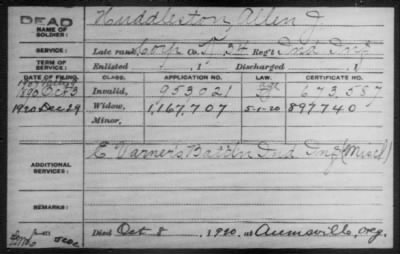 DEAD
NAME OF SOLDIER: Huddleston, Allen J.
SERVICE: Late rank Corp Co. F, 24 Reg't Ind Inf
TERM OF SERVICE: Enlisted , 1 Discharged , 1
DATE OF FILING. CLASS. APPLICATION NO. LAW. CERTIFICATE NO.
1890 Oct 3 Invalid, 953021 673587
1920 Dec 29 Widow, 1,167,707 5-1-20 897740
Minor,
ADDITIONAL SERVICES: E Varner's Batt'n Ind Inf (Miscl)
REMARKS:
Died Oct 8, 1920, at Aumsville, Oreg.